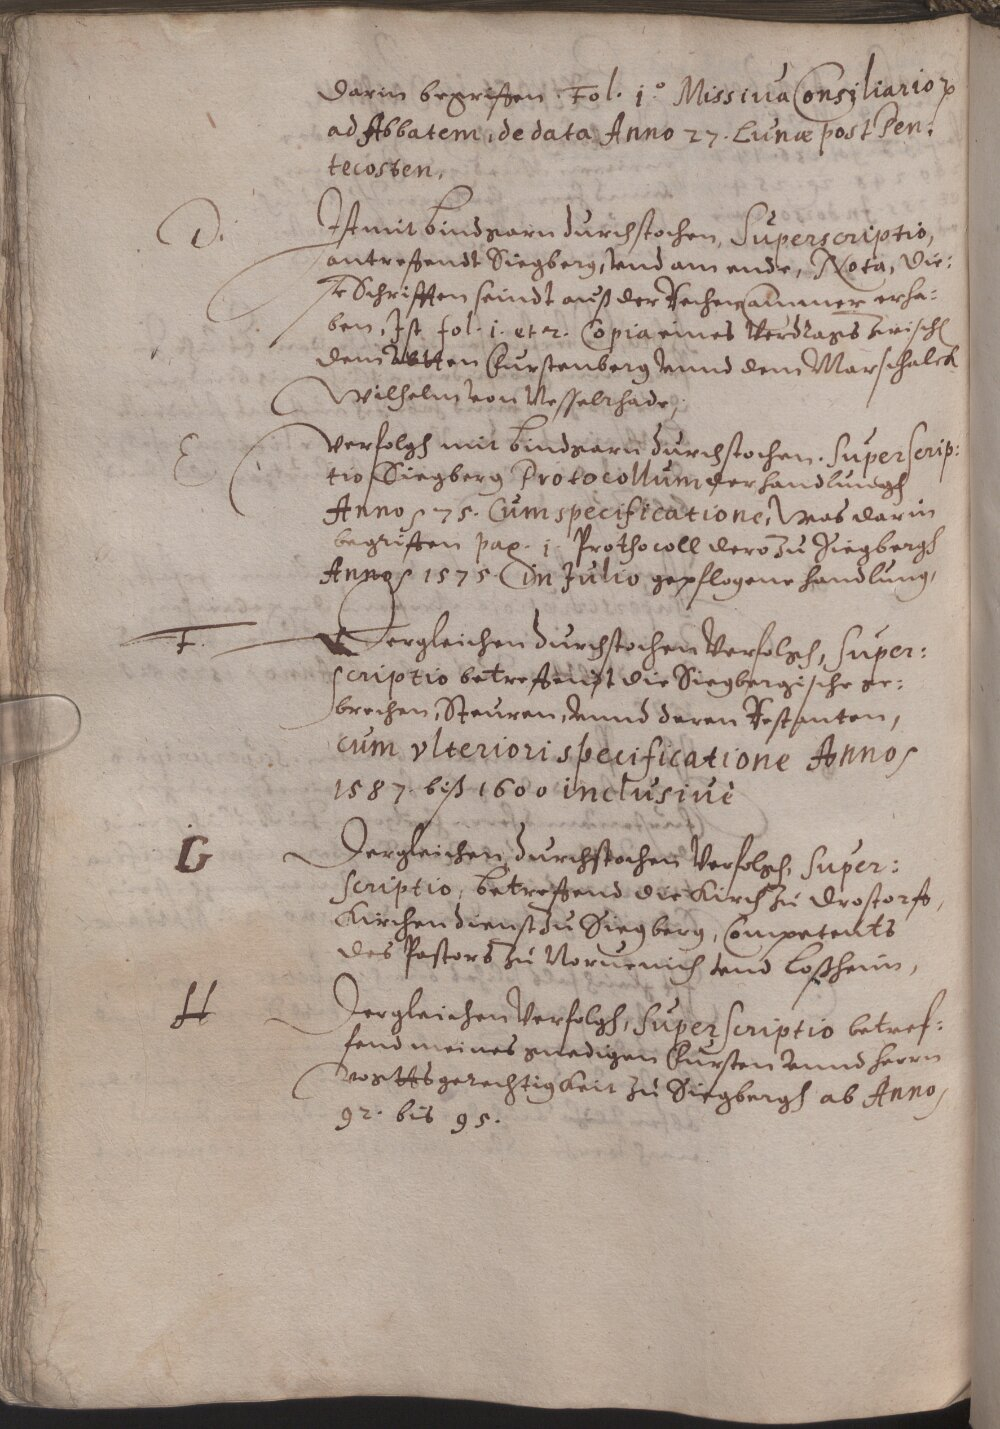 darin begriffen. Fol. 1.º Missiua Consiliariorꝝ
ad Abbatem, de data Anno 27. Lunæ post Pen:
tecosten,
D. Ist mit bindgarn durchstochen, Superscriptio,
antreffendt Siegberg, vnd am ende, Nota, Die:
se Schrifften seindt auß der Rechencammer erha:
ben, Ist fol. 1. et 2. Copia eines Verdrags zwischẽ
dem Abtten Furstenberg vnnd dem Marschalck
Wilhelm von Nesselrhade,
E Verfolgh mit bindgarn durchstochen. Superscrip:
tio Siegberg Protocollum der handlungh
Anno 75. Cum specificatione, Was darin
begriffen pag. 1. Prothocoll dero zu Siegbergh
Anno 1575. in Julio gepflogene handlung,
F. Dergleichen durchstochen Verfolgh, Super:
scriptio betreffendt die Siegbergische ge:
brechen, Steuren, vnnd deren Restanten,
cum vlteriori specificatione Anno
1587. biß 1600 inclusiuè
G Dergleichen durchstochen Verfolgh, Super:
scriptio, betreffend die Kirch zu Drostorff,
Kirchendienst zu Siegberg, Competents
des Pastors zu Noruenich vnd Loßheim,
H Dergleichen Verfolgh, Superscriptio betref:
fend meines gnedigen Fursten vnnd Herrn
vogttsgerechtigkeit zu Siegbergh ab Anno
92. bis 95.